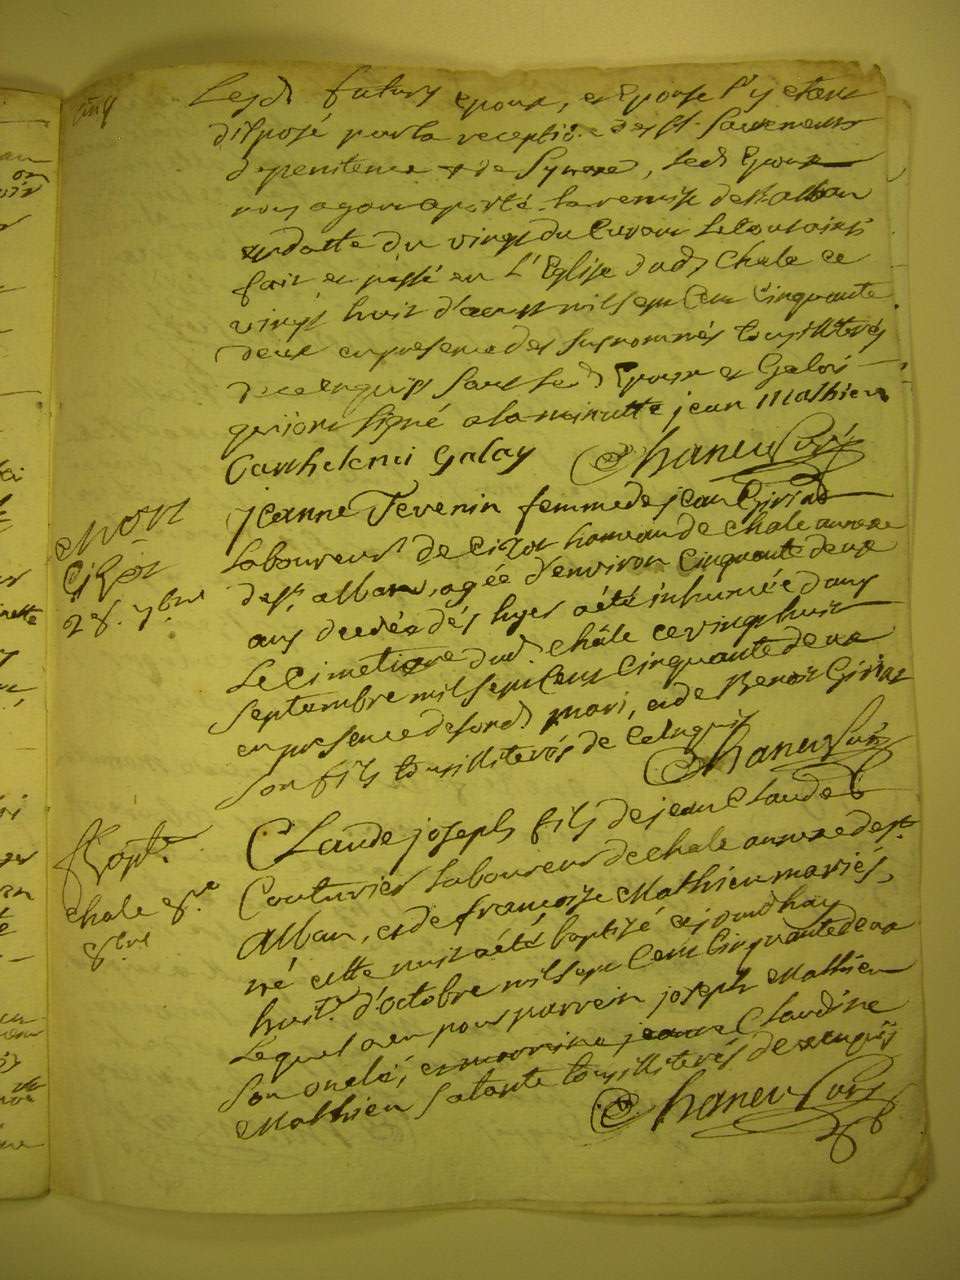 cinq
Lesd. futurs epoux, et Epouse s'y etant
disposé par la reception des St. Sacrements
de penitence et de Synaxe, led. Epoux
nous ayant aporté la remise de St. alban
en datte du vingt du Curant Letout ainsi
fait et passé en L'Eglise dud. Chale ce
vingt huit d'aoust mil sept Cent Cinquante
deux en presence des susnommés tous illiterés
de ce enquis sauf led. Epoux et Galois
qui ont signé a la minutte jean Mathieu
Barthelemi Galay Chaneu Curé
Mort
Cizot
28. 7bre
jeanne Tevenin femme de jean Girias
Laboureur de Cizot hameau de Chale annexe
de St. alban, agée d'environ Cinquante deux
ans decedée dés hyer a été inhumée dans
Le Cimetiere dud. Châle ce vingt huit
septembre mil sept Cent Cinquante deux
en presence de sond. mari, et de Benoit Girias
son fils tous illiterés de ce enquis
Chaneu Curé
Bapt.
Chale 8.e
8bre
CLaude joseph fils de jean CLaude
Couturier Laboureur de Chale annexe de St.
Alban, et de françoise Mathieu mariés,
né cette nuit a été baptizé ce jourdhuy
huit. d'octobre mil sept Cent Cinquante deux
Lequel a eu pour parrein joseph Mathieu
son oncle, et marreine jeanne Claudine
Mathieu sa tante tous illiterés de ce enquis
Chaneu Curé